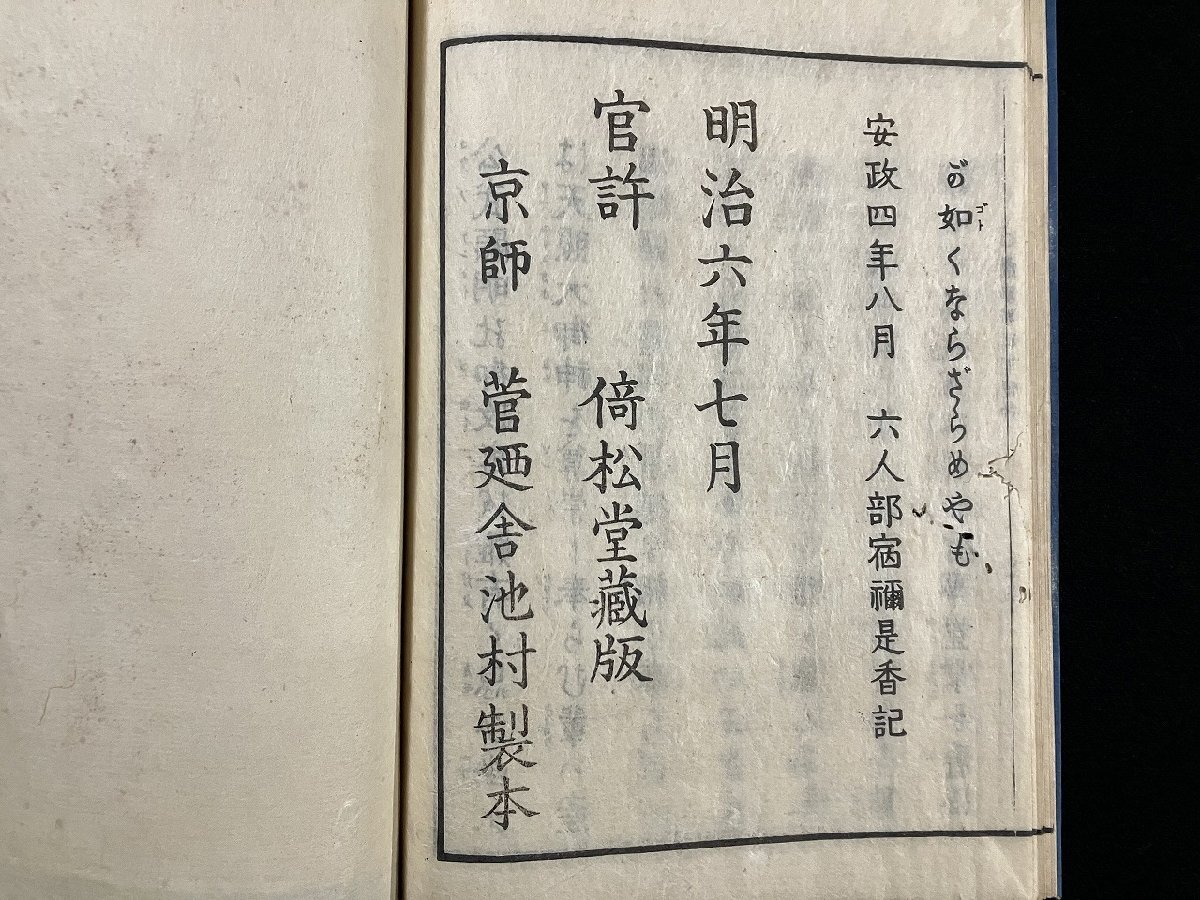 が如くならざらめやも
ゴト
安政四年八月 六人部宿禰是香記
明治六年七月
官許 倚松堂藏版
京師 菅廼舎池村製本